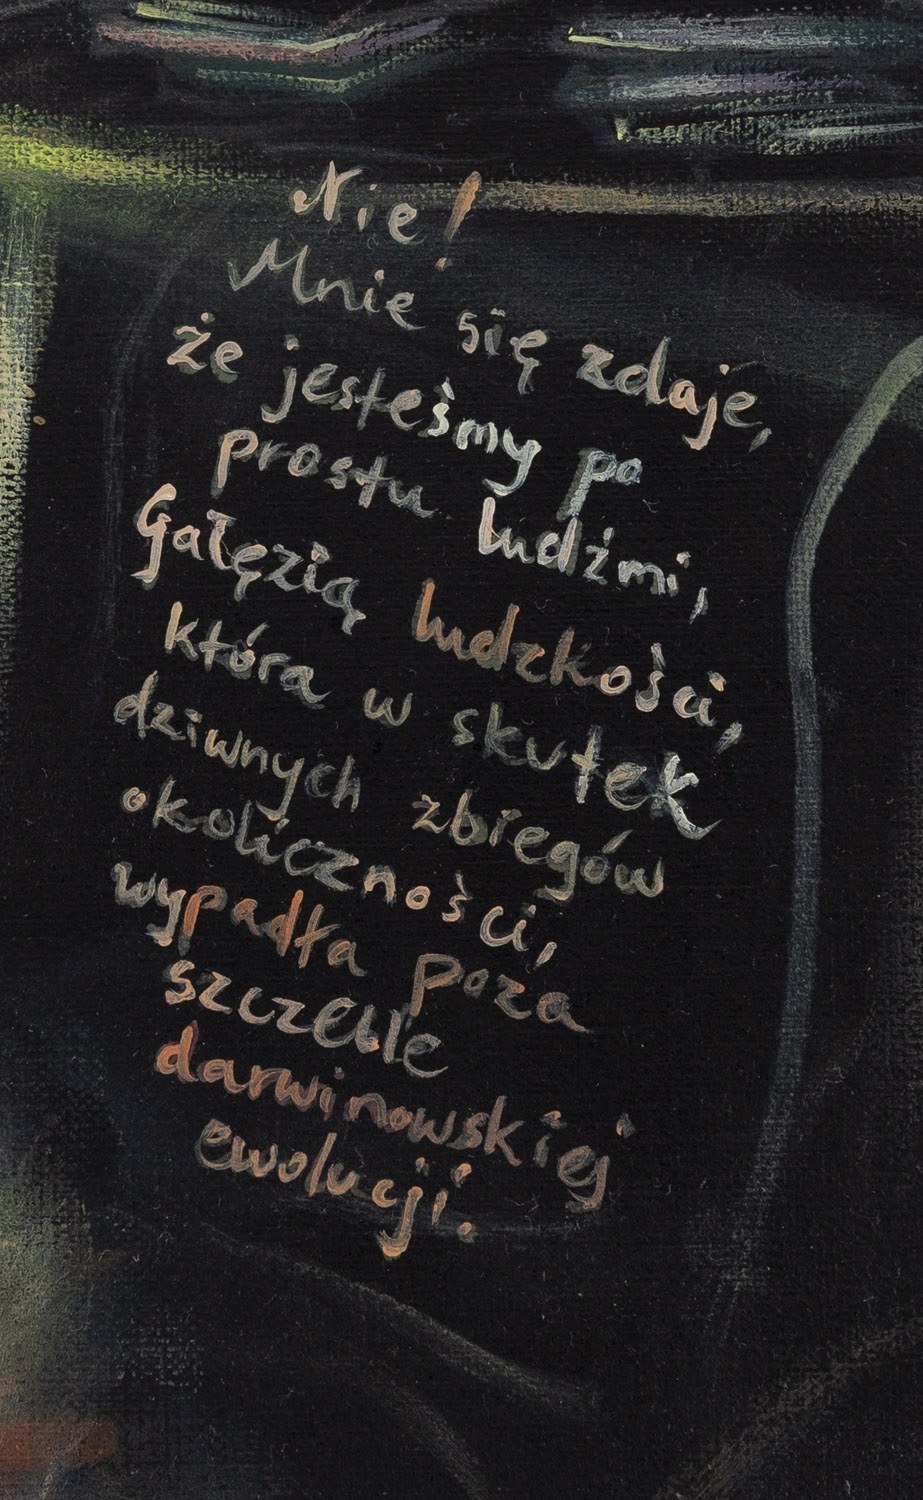 Nie!
Mnie się zdaje,
że jesteśmy po
prostu ludźmi,
Gałęzią ludzkości,
która w skutek
dziwnych zbiegów
okoliczności,
wypadła poza
szczeble
darwinowskiej
ewolucji.